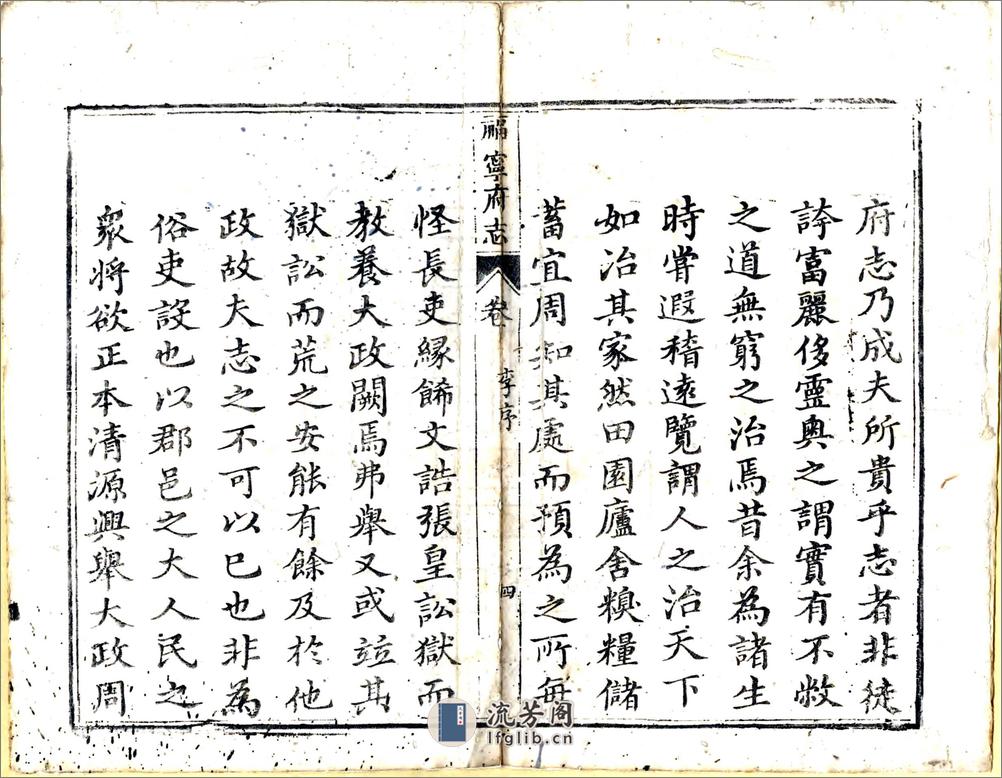 府志乃成夫所貴乎志者非徒
誇富麗侈靈奥之謂實有不敝
之道無窮之治焉昔余為諸生
時甞遐稽遠覽謂人之治天下
如治其家然田園廬舍糗糧儲
蓄宜周知其處而預為之所每
福寧府志 卷 李序 四
怪長吏緣餙文誥張皇訟獄而
教養大政闕焉弗舉又或竝其
獄訟而荒之安能有餘及於他
政故夫志之不可以已也非為
俗吏設也以郡邑之大人民之
衆將欲正本清源興舉大政周
流芳阁
lfglib.cn